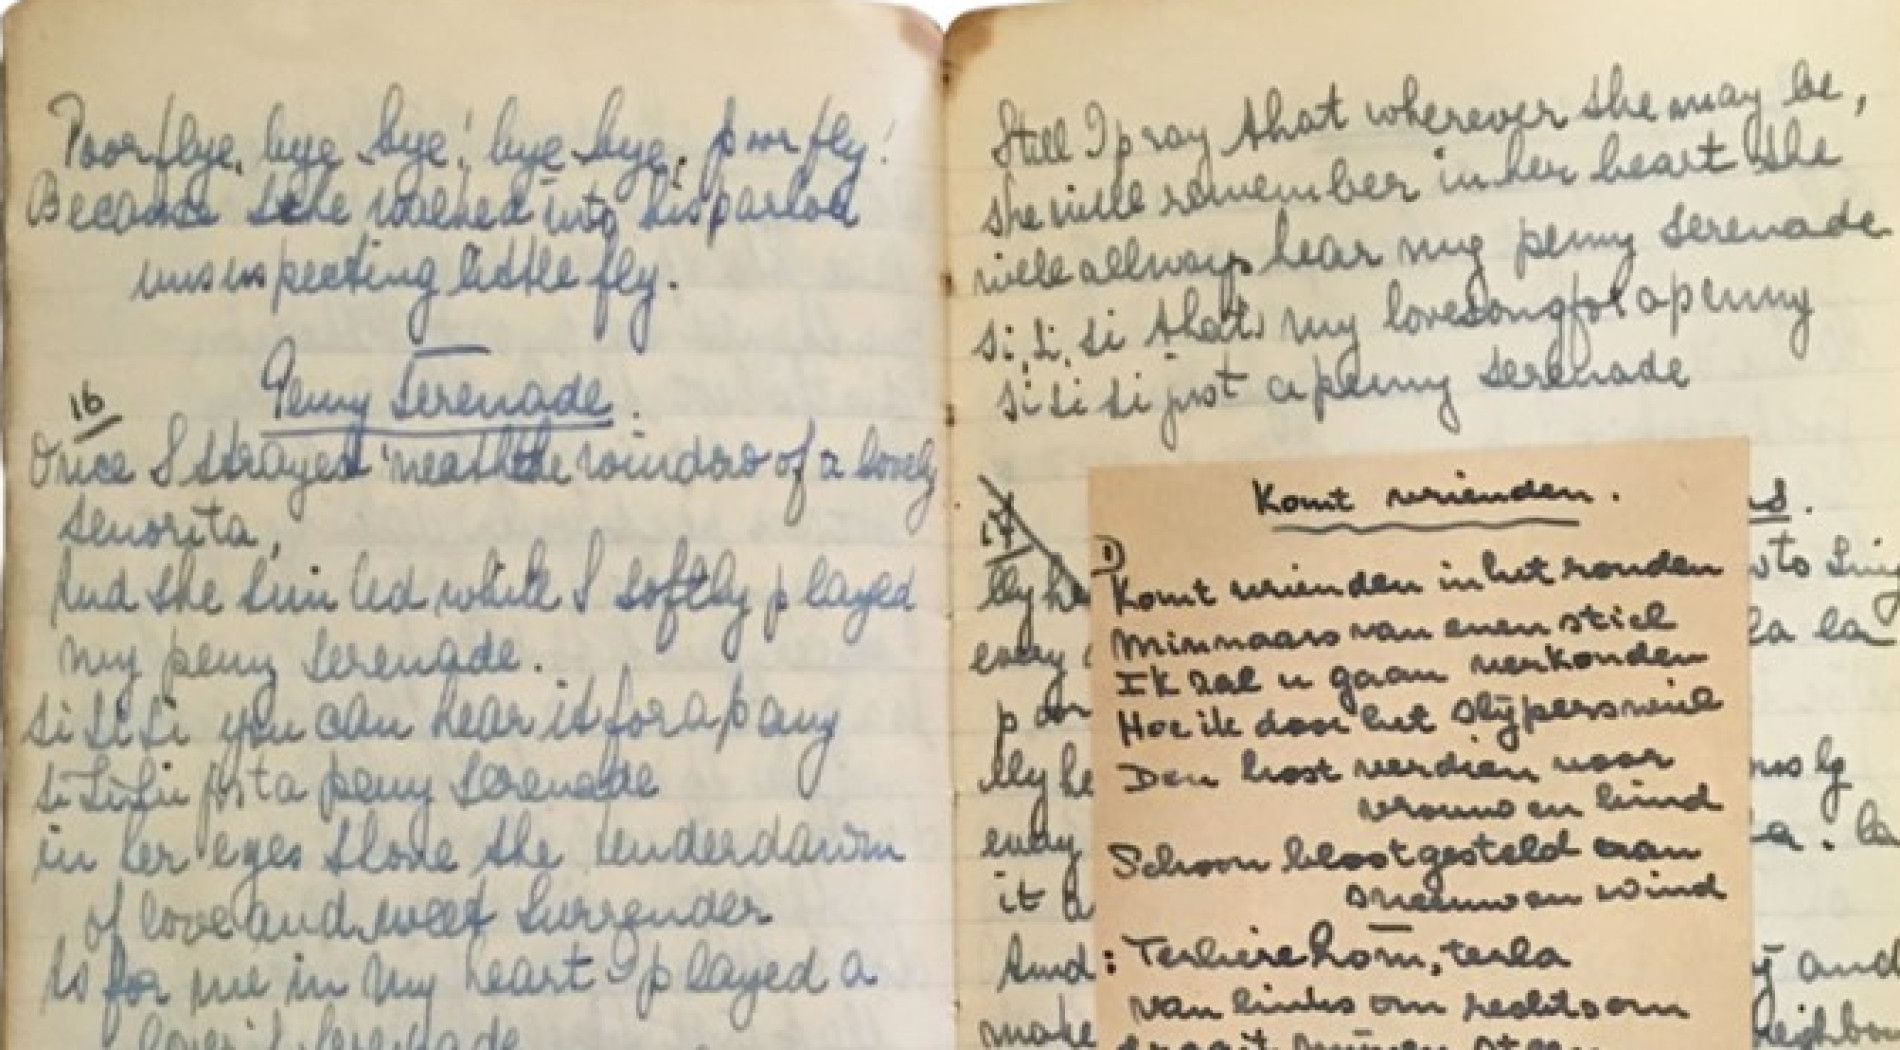 Poor flye, bye bye! bye bye, poor fly!
Because she walked into his parlour
unsuspecting little fly.
16 Penny Serenade.
Once I strayed 'neath the window of a lovely
senorita,
And she smiled while I softly played
my penny serenade.
si si si you can hear it for a pany
si si si just a penny serenade
in her eyes shone the tender dawn
of love and sweet surrender
As for me in my heart I played a
lover's serenade
Still I pray that wherever she may be,
she wille remember in her heart she
wille allways hear my penny serenade
si, si, si thats my lovesong for a penny
si si si just a penny serenade
17 s.
lly he
every
poor
lly he
every
it
And:
make
to sing
la la
la. la
and
neighbou
Komt vrienden.
1) Komt vrienden in het ronden
Minnaars van enen stiel
Ik zal u gaan verkonden
Hoe ik door het slijperswiel
Den kost verdien voor
vrouw en kind
Schoon blootgesteld aan
sneeuw en wind
Terlierelom, terla
van links om rechtsom
draait mijnen steen